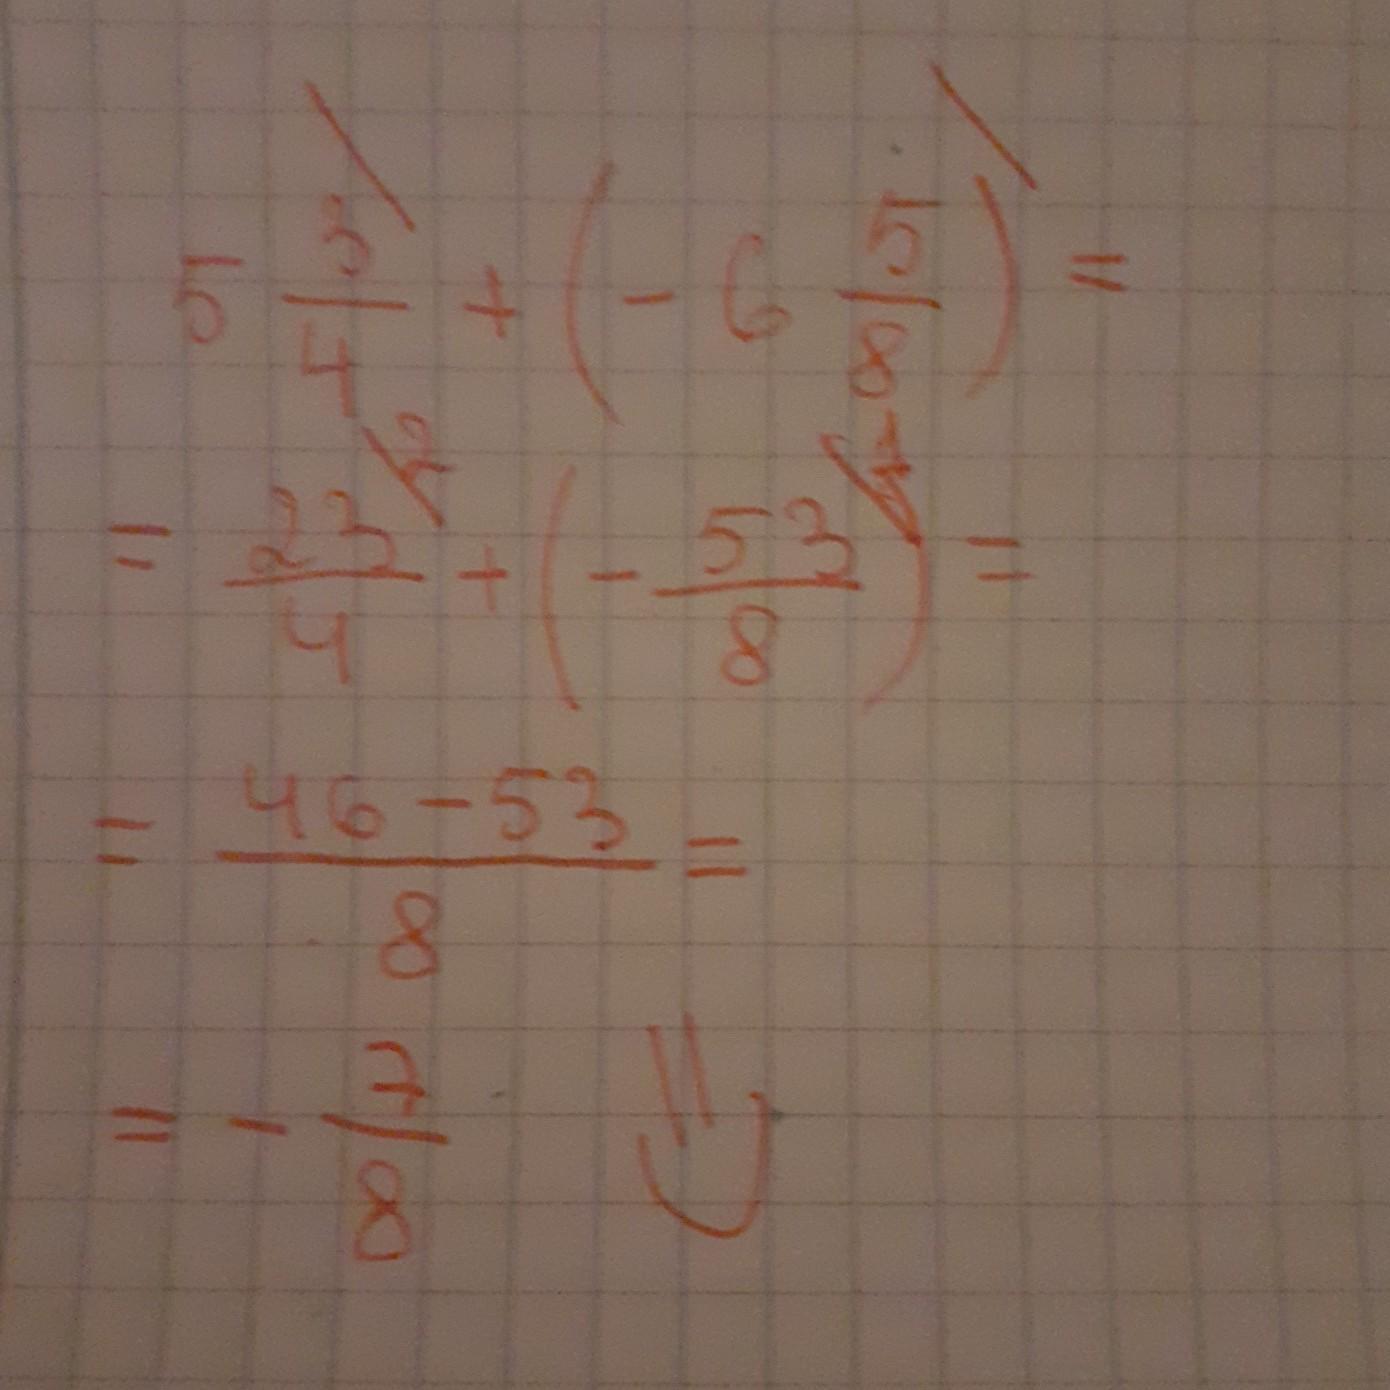 5 3/4 + (- 6 5/8) =
= 23/4 \2 + (- 53/8 \1) =
= 46 - 53/8 =
= - 7/8